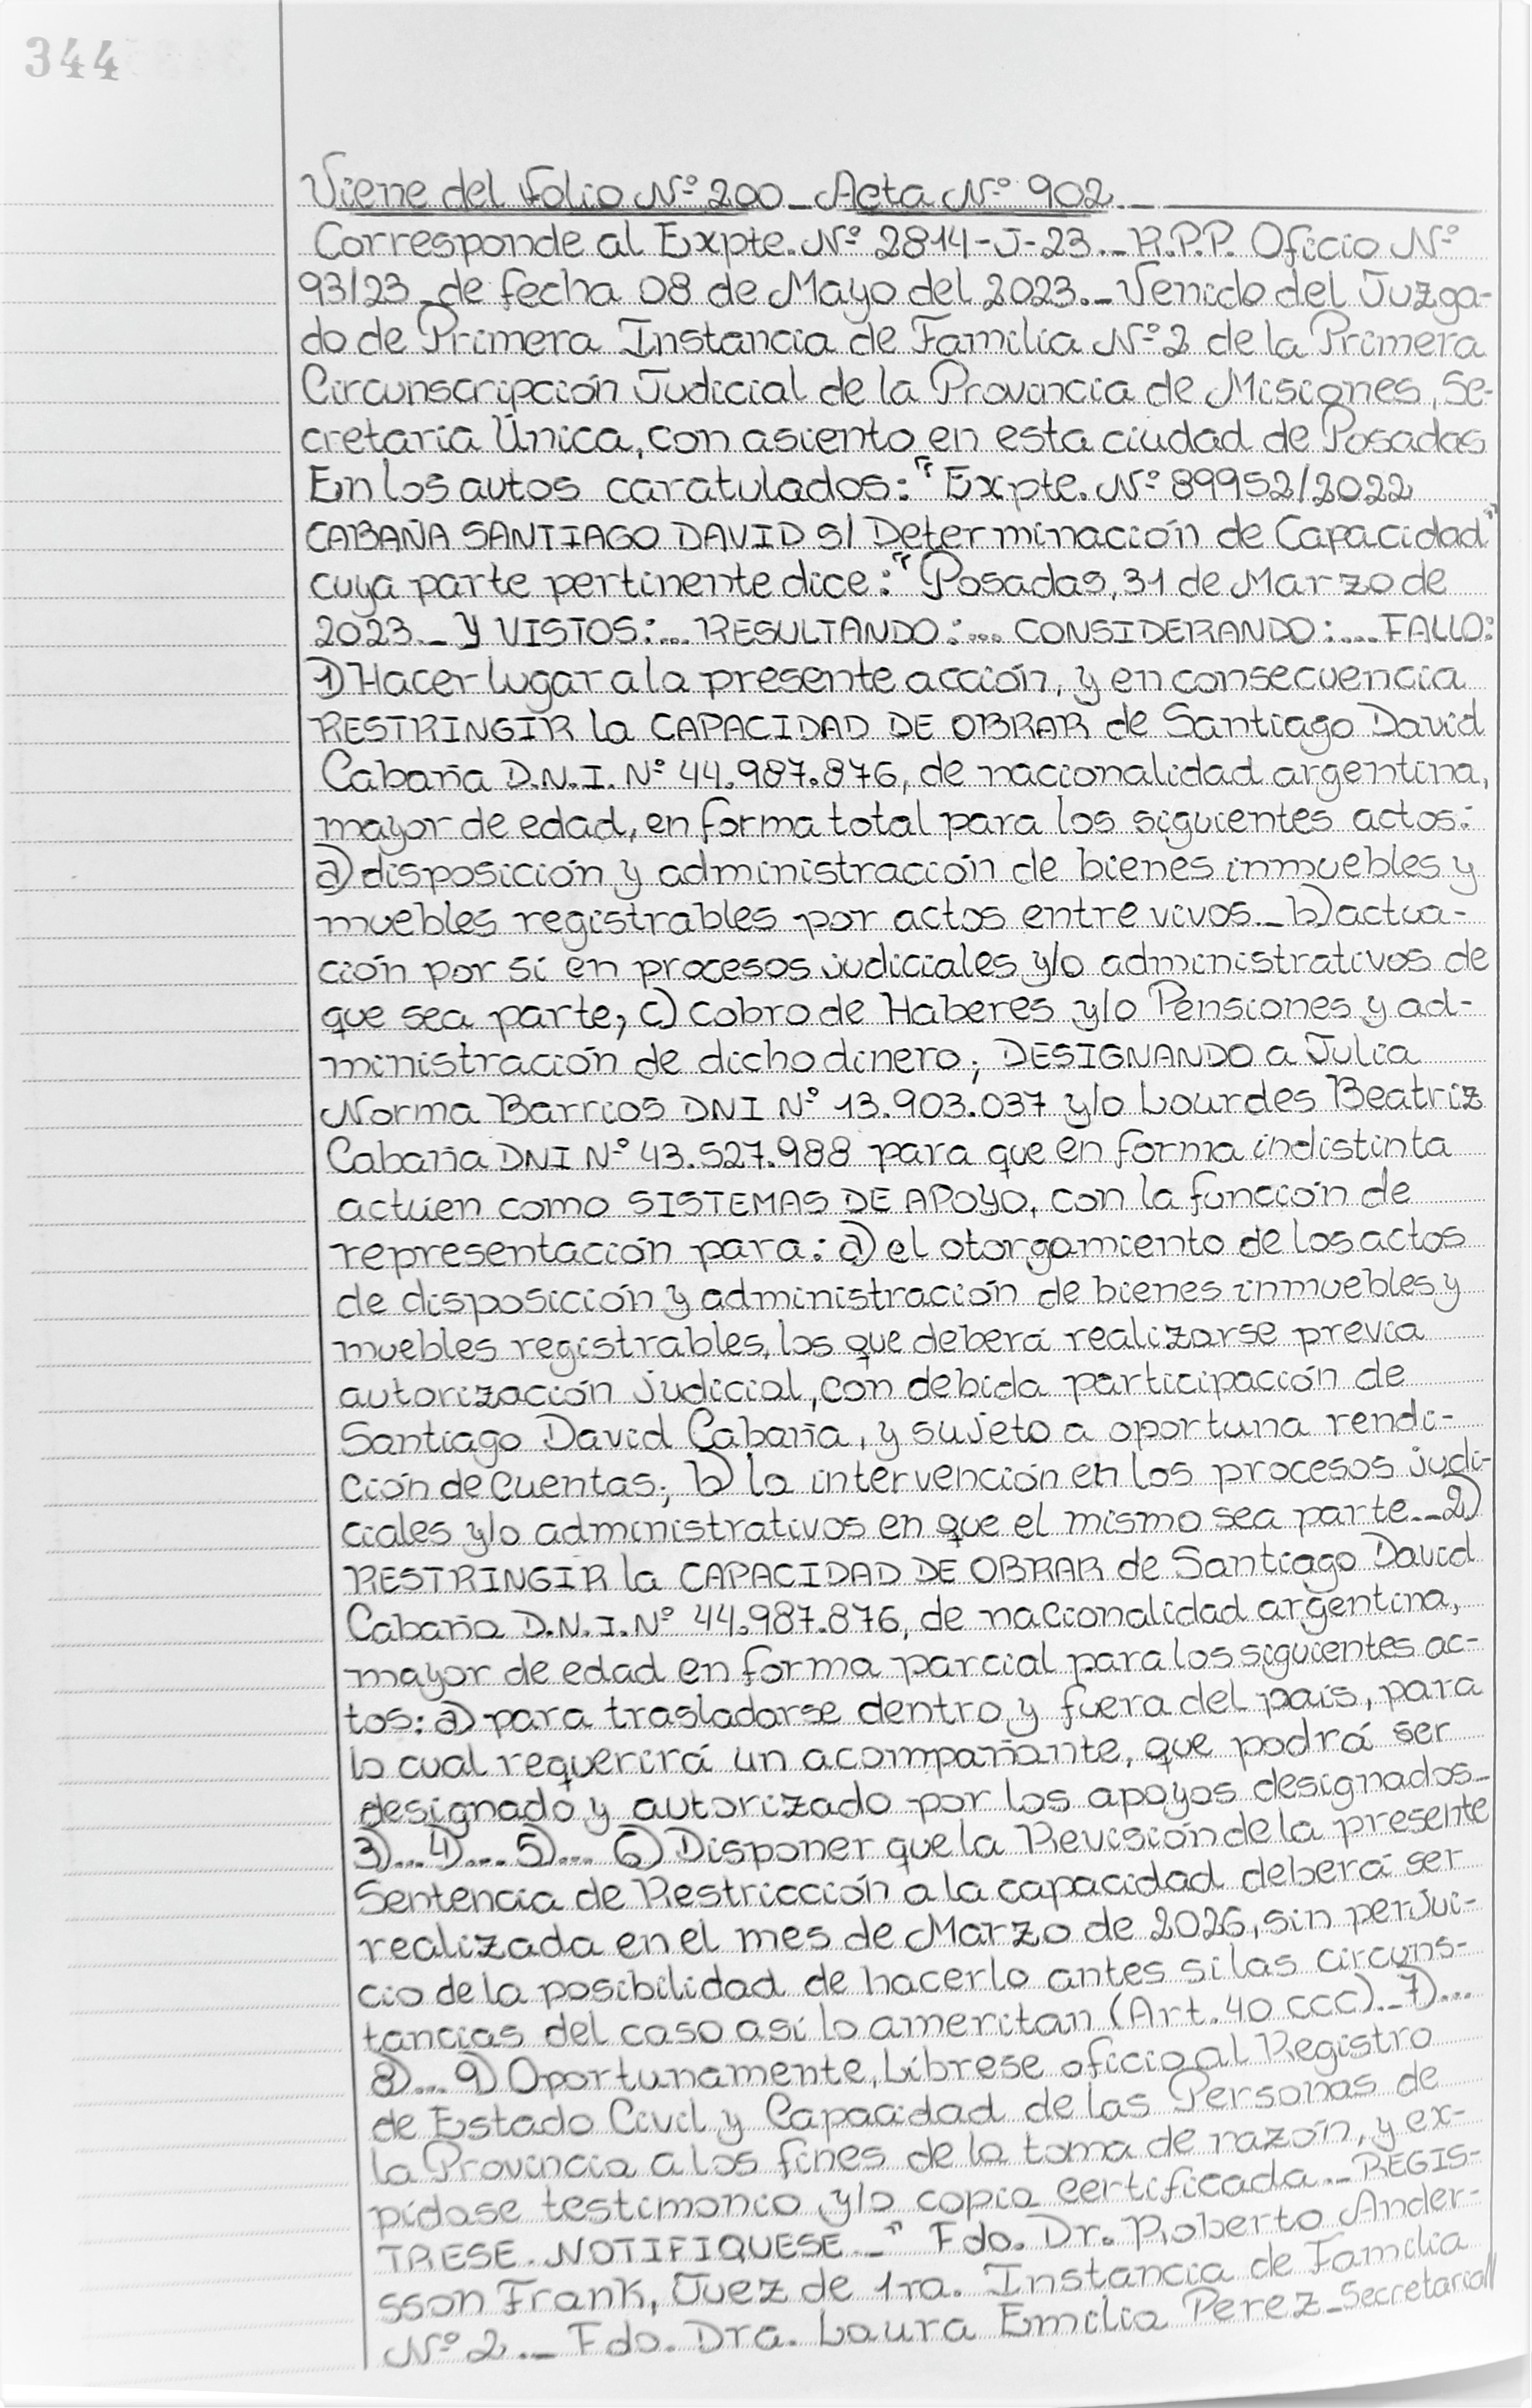 344
Viene del folio Nº 200 _ Acta Nº 902._
Corresponde al Expte. Nº 2814-J-23._ R.P.P. Oficio Nº
93/23 de fecha 08 de Mayo del 2023._ Venido del Juzga-
do de Primera Instancia de Familia Nº 2 de la Primera
Circunscripción Judicial de la Provincia de Misiones, Se-
cretaría Única, con asiento en esta ciudad de Posadas
En los autos caratulados: "Expte. Nº 89952/2022
CABAÑA SANTIAGO DAVID S/ Determinación de Capacidad"
cuya parte pertinente dice: "Posadas, 31 de Marzo de
2023._ Y VISTOS:... RESULTANDO:... CONSIDERANDO:... FALLO:
1) Hacer lugar a la presente acción, y en consecuencia
RESTRINGIR la CAPACIDAD DE OBRAR de Santiago David
Cabaña D.N.I. Nº 44.987.876, de nacionalidad argentina,
mayor de edad, en forma total para los siguientes actos:
a) disposición y administración de bienes inmuebles y
muebles registrables por actos entre vivos._ b) actua-
ción por sí en procesos judiciales y/o administrativos de
que sea parte; c) Cobro de Haberes y/o Pensiones y ad-
ministración de dicho dinero; DESIGNANDO a Julia
Norma Barrios DNI Nº 13.903.037 y/o Lourdes Beatriz
Cabaña DNI Nº 43.527.988 para que en forma indistinta
actúen como SISTEMAS DE APOYO, con la función de
representación para: a) el otorgamiento de los actos
de disposición y administración de bienes inmuebles y
muebles registrables, los que deberá realizarse previa
autorización judicial, con debida participación de
Santiago David Cabaña, y sujeto a oportuna rendi-
ción de cuentas; b) la intervención en los procesos judi-
ciales y/o administrativos en que el mismo sea parte._ 2)
RESTRINGIR la CAPACIDAD DE OBRAR de Santiago David
Cabaña D.N.I. Nº 44.987.876, de nacionalidad argentina,
mayor de edad en forma parcial para los siguientes ac-
tos: a) para trasladarse dentro y fuera del país, para
lo cual requerirá un acompañante, que podrá ser
designado y autorizado por los apoyos designados_
3)... 4)... 5)... 6) Disponer que la Revisión de la presente
Sentencia de Restricción a la capacidad deberá ser
realizada en el mes de Marzo de 2026, sin perjui-
cio de la posibilidad de hacerlo antes si las circuns-
tancias del caso así lo ameritan (Art. 40 CCC)._ 7)...
8)... 9) Oportunamente, Líbrese oficio al Registro
de Estado Civil y Capacidad de las Personas de
la Provincia a los fines de la toma de razón, y ex-
pídase testimonio y/o copia certificada._ REGIS-
TRESE. NOTIFIQUESE._" Fdo. Dr. Roberto Ander-
sson Frank, Juez de 1ra. Instancia de Familia
Nº 2._ Fdo. Dra. Laura Emilia Perez_Secretaria//